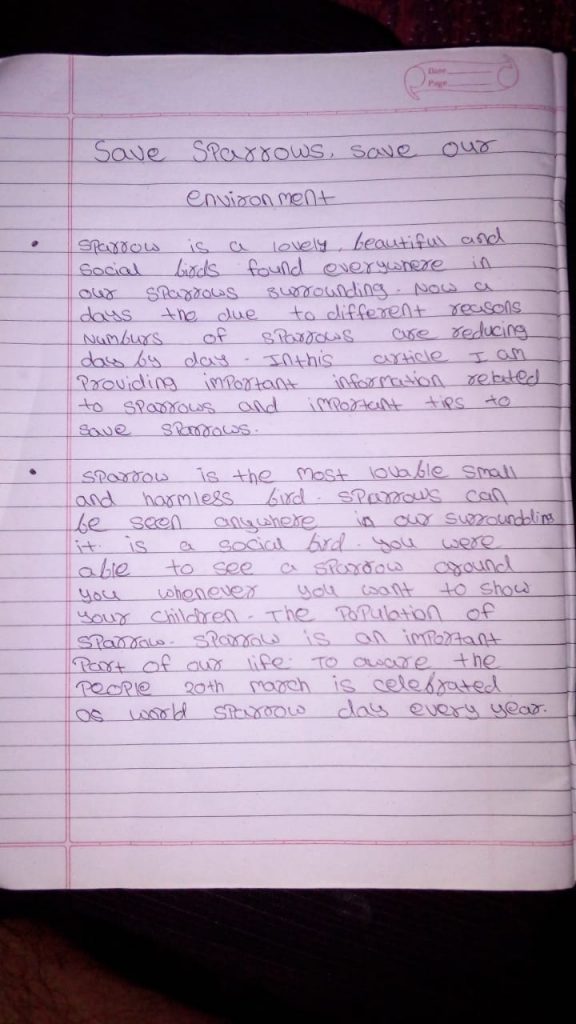 Date
Page
Save Sparrows, save our
environment
• Sparrow is a lovely, beautiful and
social birds found everywhere in
our sparrows surrounding. Now a
days the due to different reasons
Numburs of sparrows are reducing
day by day. Inthis article I am
Providing important information related
to sparrows and important tips to
save sparrows.
• Sparrow is the most lovable small
and harmless bird. Sparrows can
be seen anywhere in our surrounding
it is a social bird. you were
able to see a sparrow around
you whenever you want to show
your children. The Population of
sparrow. Sparrow is an important
Part of our life. To aware the
People 20th march is celebrated
as world sparrow day every year.